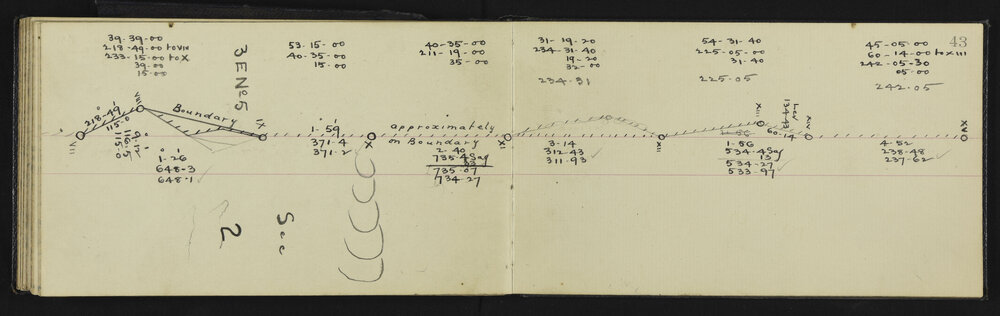 43
39-39-00
218-49-00 to VIII
233-15-00 to X
39-00
15-00
3 E No 5
53-15-00
40-35-00
15-00
40-35-00
211-19-00
35-00
31-19-20
234-31-40
19-20
32-00
234-31
54-31-40
225-05-00
31-40
225-05
45-05-00
60-14-00 to XIII
242-05-30
05-00
242-05
VII
218-49
115-0
VIII
Boundary
IX
116-5
115-0
1-26
648-3
648-1
1-59
371-4
371-2
X
approximately
on Boundary
2-40
735-4 Sag
735-07
734-27
XI
3-14
312-43
311-93
XII
XIII
134-43
60-14
XIV
1-56
534-4 Sag
13
534-27
533-97
4-52
238-48
237-62
XV
See
2